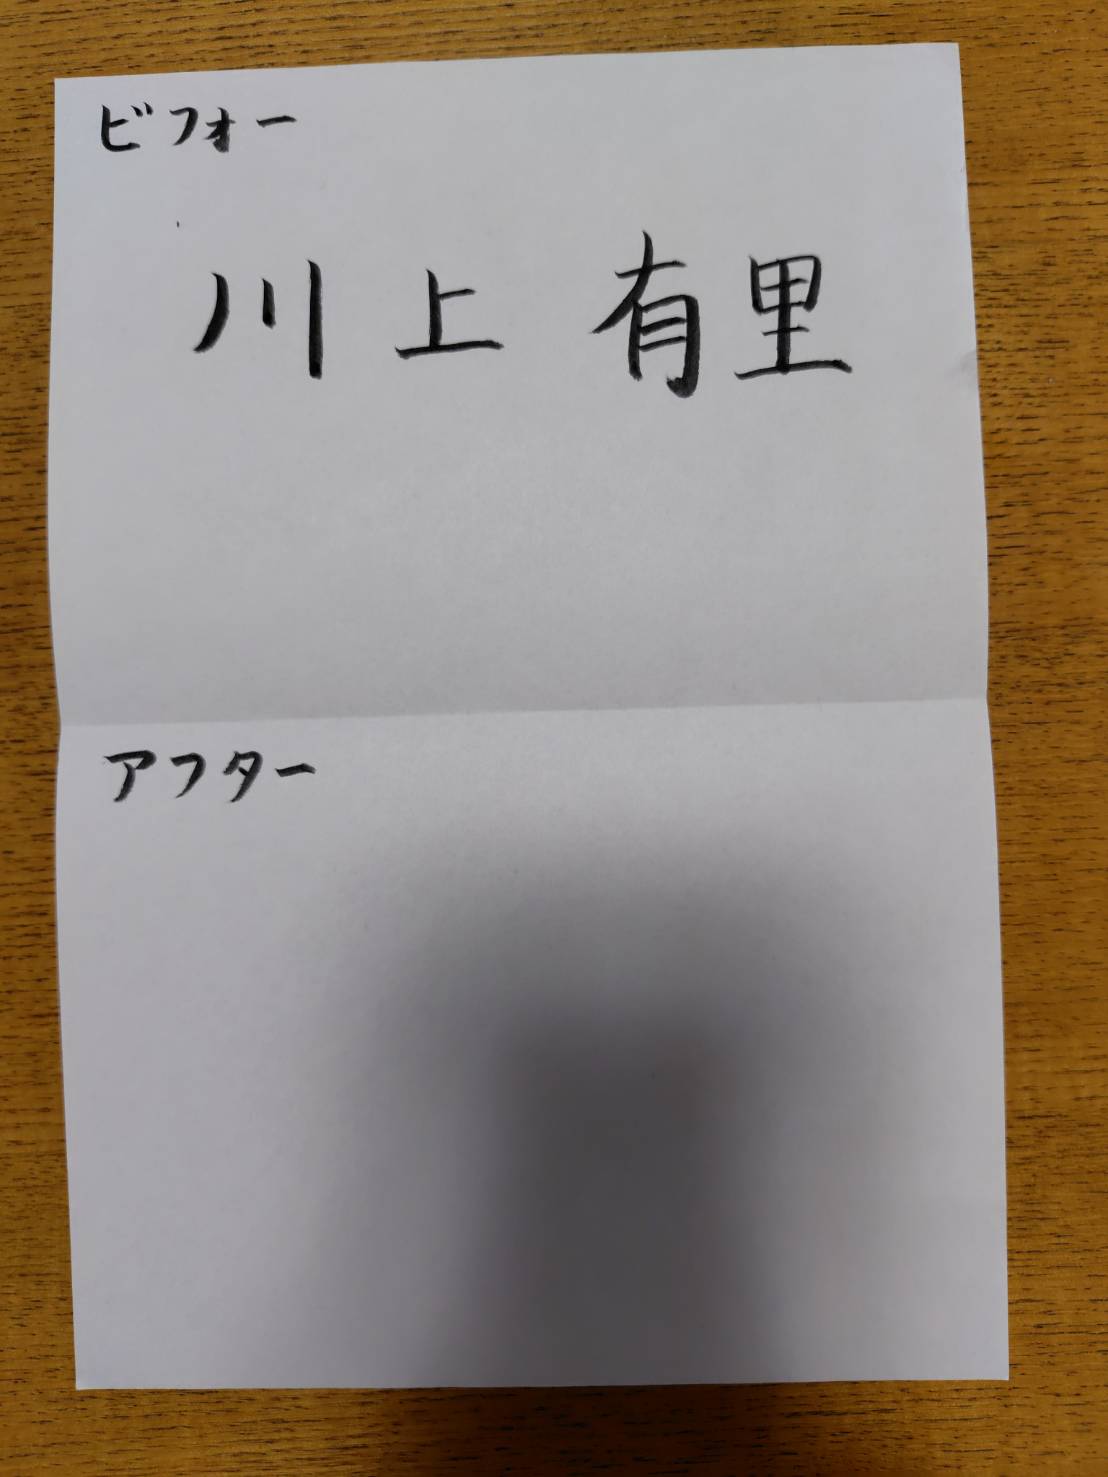 ビフォー
川上 有里
アフター